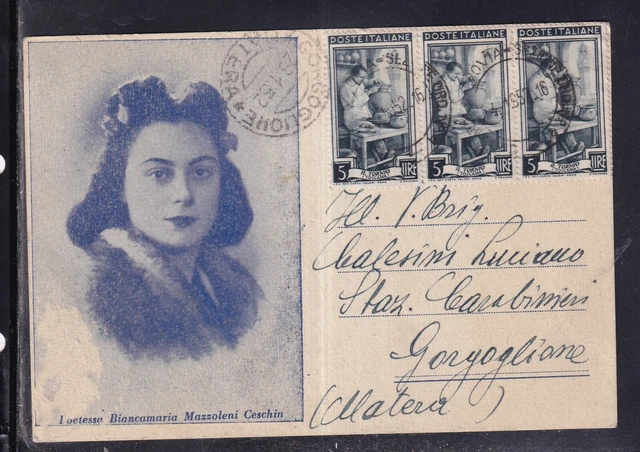 POSTE ITALIANE POSTE ITALIANE POSTE ITALIANE
GORGOGLIONE
MATERA
5 LIRE 5 LIRE 5 LIRE
IL TORNIO IL TORNIO IL TORNIO
Ill. V. Brig.
Calesini Luciano
Staz. Carabinieri
Gorgoglione
(Matera)
Poetessa Biancamaria Mazzoleni Ceschin